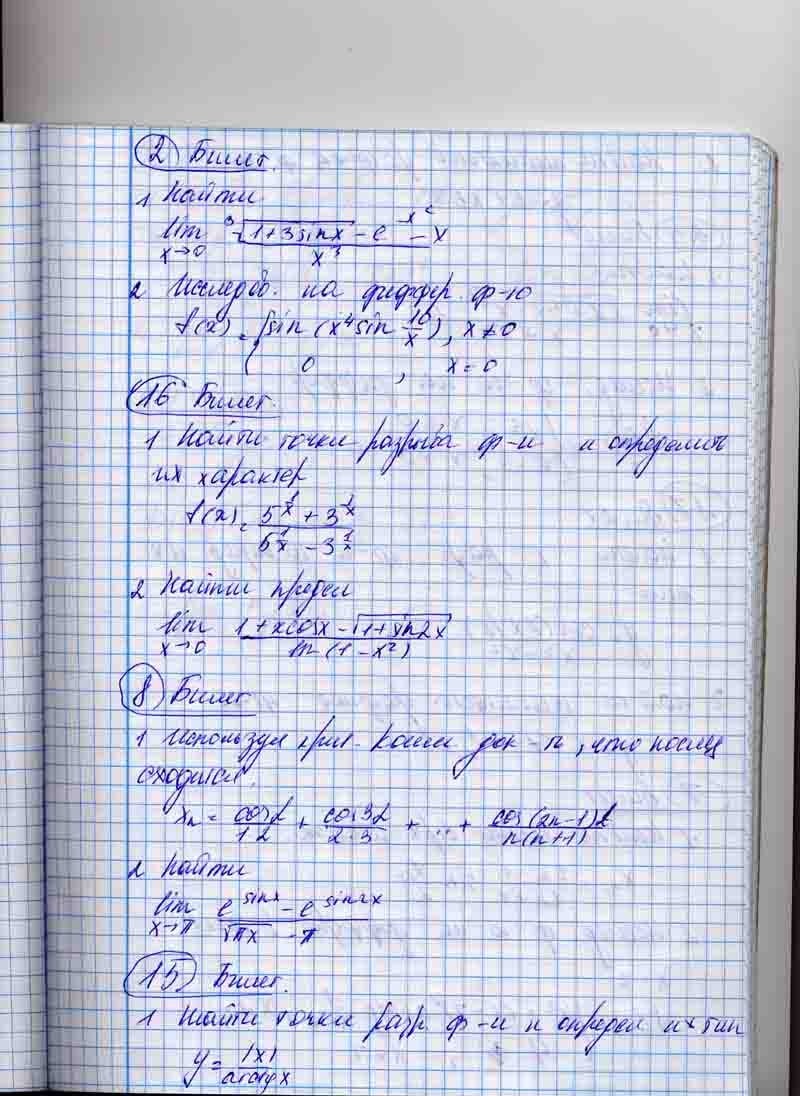 2 Билет.
1 Найти
lim x→0 (∛(1+3sinx) - e^(-x²) - x) / x³
2 Исследов. на диффер. ф-ю
f(x) = { sin (x⁴ sin 10/x), x≠0
0 , x=0
16 Билет.
1 Найти точки разрыва ф-и и определить
их характер
f(x) = (5^(1/x) + 3^(1/x)) / (5^(1/x) - 3^(1/x))
2 Найти предел
lim x→0 (1+xcosx - √(1+sin2x)) / ln(1-x²)
8 Билет
1 Используя крит. Коши док-ть, что послед
сходится.
xₙ = cosα/1·2 + cos3α/2·3 + ... + cos(2n-1)α/n(n+1)
2 Найти
lim x→π (e^(sinx) - e^(sin2x)) / (√(πx) - π)
15 Билет.
1 Найти точки разр ф-и и определ их тип
y = |x| / arctgx